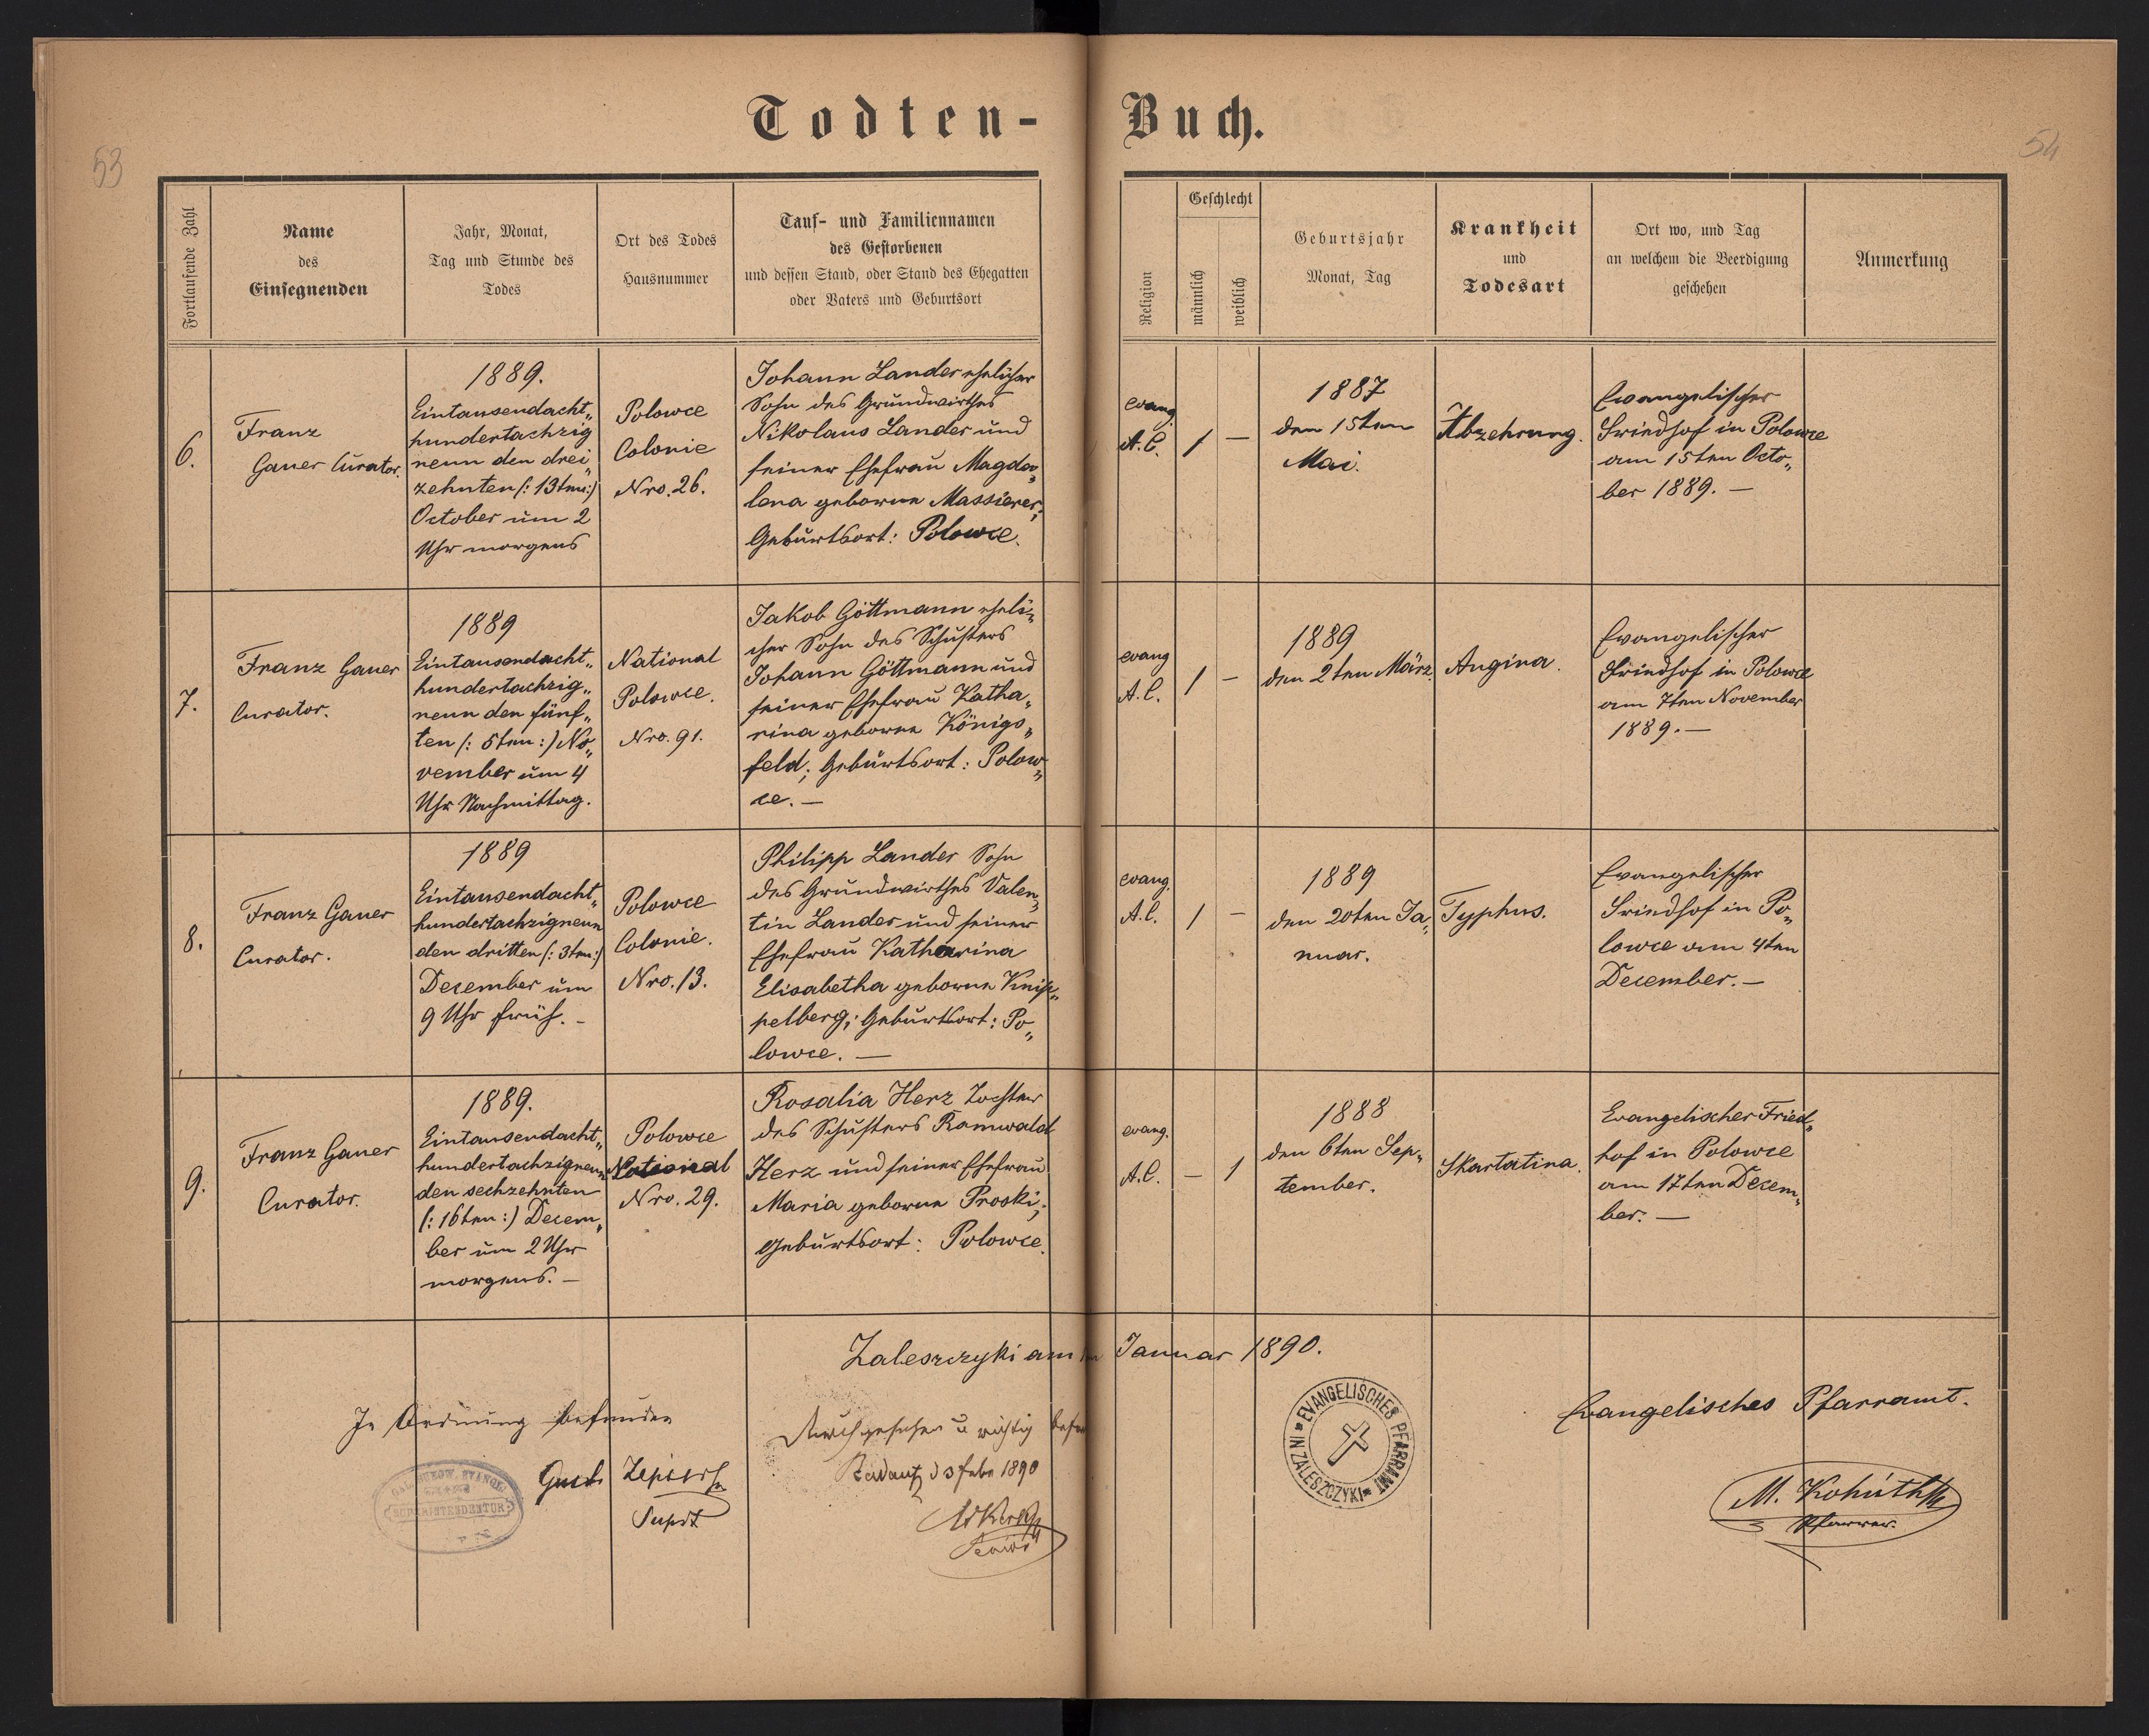 53
54
Todten-Buch.
Fortlaufende Zahl
Name
des
Einsegnenden
Jahr, Monat,
Tag und Stunde des
Todes
Ort des Todes
Hausnummer
Tauf- und Familiennamen
des Gestorbenen
und dessen Stand, oder Stand des Ehegatten
oder Vaters und Geburtsort
Religion
Geschlecht
männlich
weiblich
Geburtsjahr
Monat, Tag
Krankheit
und
Todesart
Ort wo, und Tag
an welchem die Beerdigung
geschehen
Anmerkung
6.
Franz
Gauer Curator.
1889.
Eintausendacht„
hundertachzig
neun den drei„
zehnten (: 13ten :)
October um 2
Uhr morgens
Polowce
Colonie
Nro. 26.
Johann Lander ehelicher
Sohn des Grundwirthes
Nikolaus Lander und
seiner Ehefrau Magda„
lena geborne Massierer;
Geburtsort: Polowce.
evang.
A.C.
1
—
1887
den 15ten
Mai.
Abzehrung.
Evangelischer
Friedhof in Polowce
am 15ten Octo„
ber 1889. —
7.
Franz Gauer
Curator.
1889
Eintausendacht„
hundertachzig„
neun den fünf„
ten (: 5ten :) No„
vember um 4
Uhr Nachmittag.
National
Polowce.
Nro. 91.
Jakob Göttmann eheli„
cher Sohn des Schusters
Johann Göttmann und
seiner Ehefrau Katha„
rina geborne Königs„
feld; Geburtsort: Polow„
ce. —
evang
A.C.
1
—
1889
den 2ten März.
Angina.
Evangelischer
Friedhof in Polowce
am 7ten November
1889. —
8.
Franz Gauer
Curator.
1889
Eintausendacht„
hundertachzigneun
den dritten (: 3ten :)
December um
9 Uhr früh. —
Polowce
Colonie.
Nro. 13.
Philipp Lander Sohn
des Grundwirthes Valen„
tin Lander und seiner
Ehefrau Katharina
Elisabetha geborne Knip„
pelberg; Geburtsort: Po„
lowce. —
evang.
A.C.
1
—
1889
den 20ten Ja„
nuar.
Typhus.
Evangelischer
Friedhof in Po„
lowce am 4ten
December. —
9.
Franz Gauer
Curator.
1889.
Eintausendacht„
hundertachzigneun
den sechzehnten
(: 16ten :) Decem„
ber um 2 Uhr
morgens. —
Polowce
National
Nro. 29.
Rosalia Herz Tochter
des Schusters Romwald
Herz und seiner Ehefrau
Maria geborne Proski;
Geburtsort: Polowce.
evang.
A.C.
—
1
1888
den 6ten Sep„
tember.
Skartatina.
Evangelischer Fried„
hof in Polowce
am 17ten Decem„
ber. —
Zaleszczyki am Januar 1890.
In Ordnung befunden
Supdt
SUPERINTENDENTUR
Durchgesehen u richtig
Radautz d 3 Febr 1890
EVANGELISCHES PFARRAMT IN ZALESZCZYKI
Evangelisches Pfarramt.
M. Kohúth
Pfarrer.